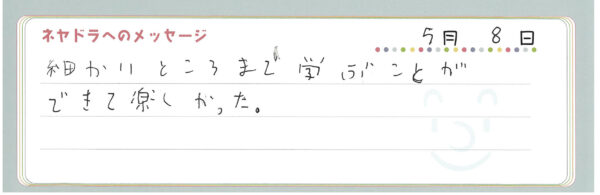 ネヤドラへのメッセージ
5月 8日
細かいところまで学ぶことが
できて楽しかった。